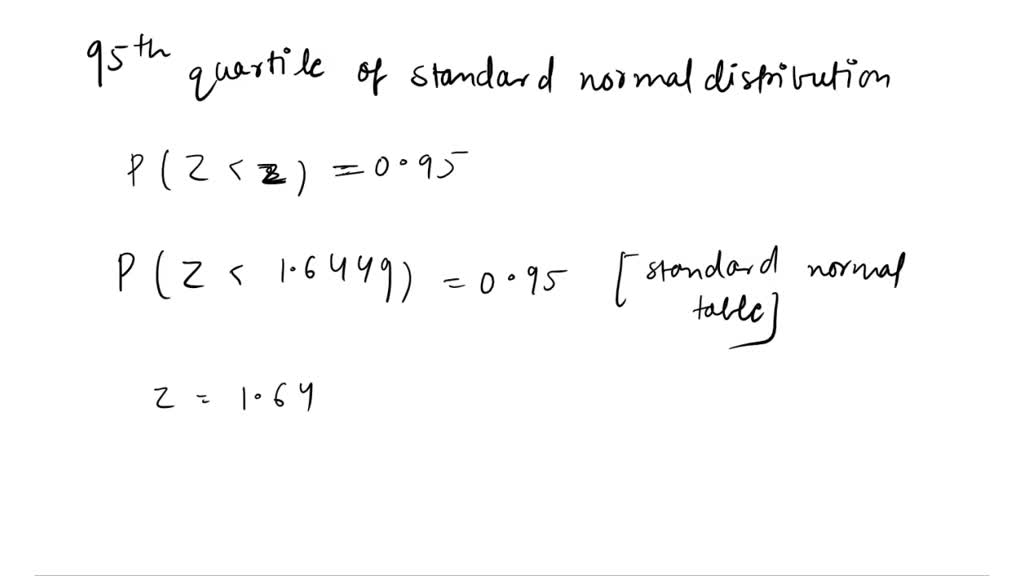 95th quartile of standard normal distribution
P(Z < z) = 0.95
P(Z < 1.6449) = 0.95 [standard normal
table]
z = 1.64